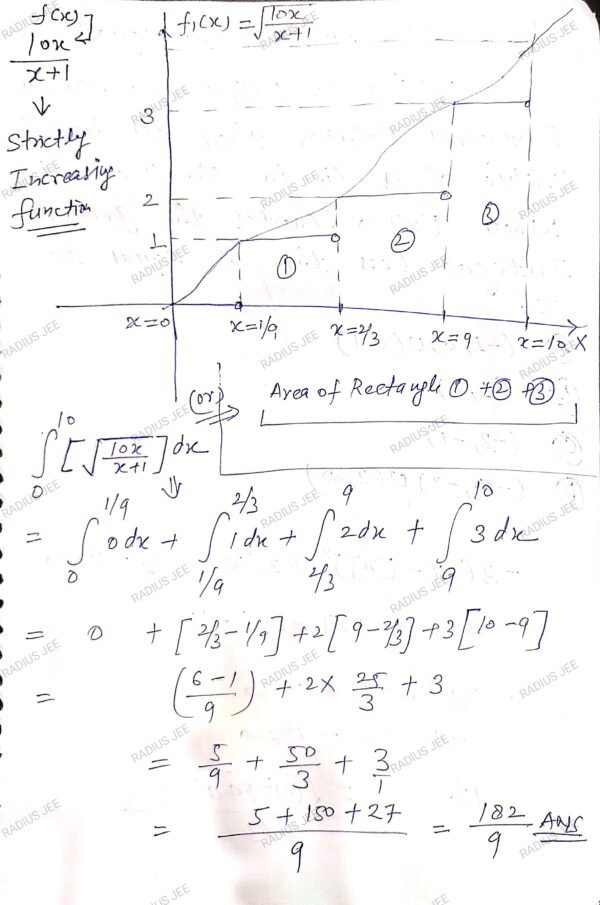 f(x)
10x
x+1
↓
Strictly
Increasing
function
f₁(x) = √(10x/(x+1))
3
2
1
①
②
③
x=0
x=1/9
x=2/3
x=9
x=10 X
(or) ⇒ Area of Rectangle ① + ② + ③
∫₀¹⁰ [√(10x/(x+1))] dx
= ∫₀^(1/9) 0 dx + ∫_(1/9)^(2/3) 1 dx + ∫_(2/3)^9 2 dx + ∫₉¹⁰ 3 dx
= 0 + [2/3 - 1/9] + 2[9 - 2/3] + 3[10 - 9]
= ((6-1)/9) + 2 × 25/3 + 3
= 5/9 + 50/3 + 3/1
= (5 + 150 + 27)/9 = 182/9 ANS
RADIUS JEE